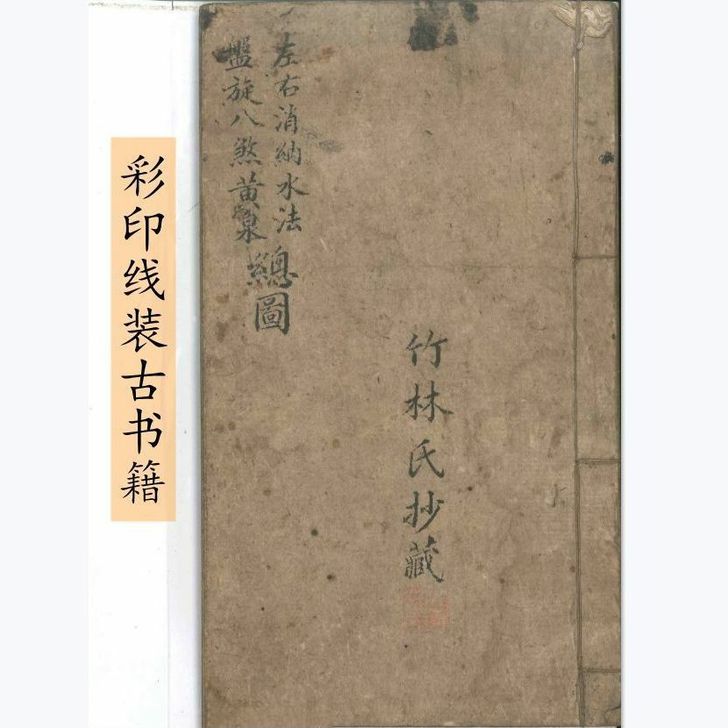 彩印线装古书籍
左右消納水法
盤旋八煞黃泉
總圖
竹林氏抄藏